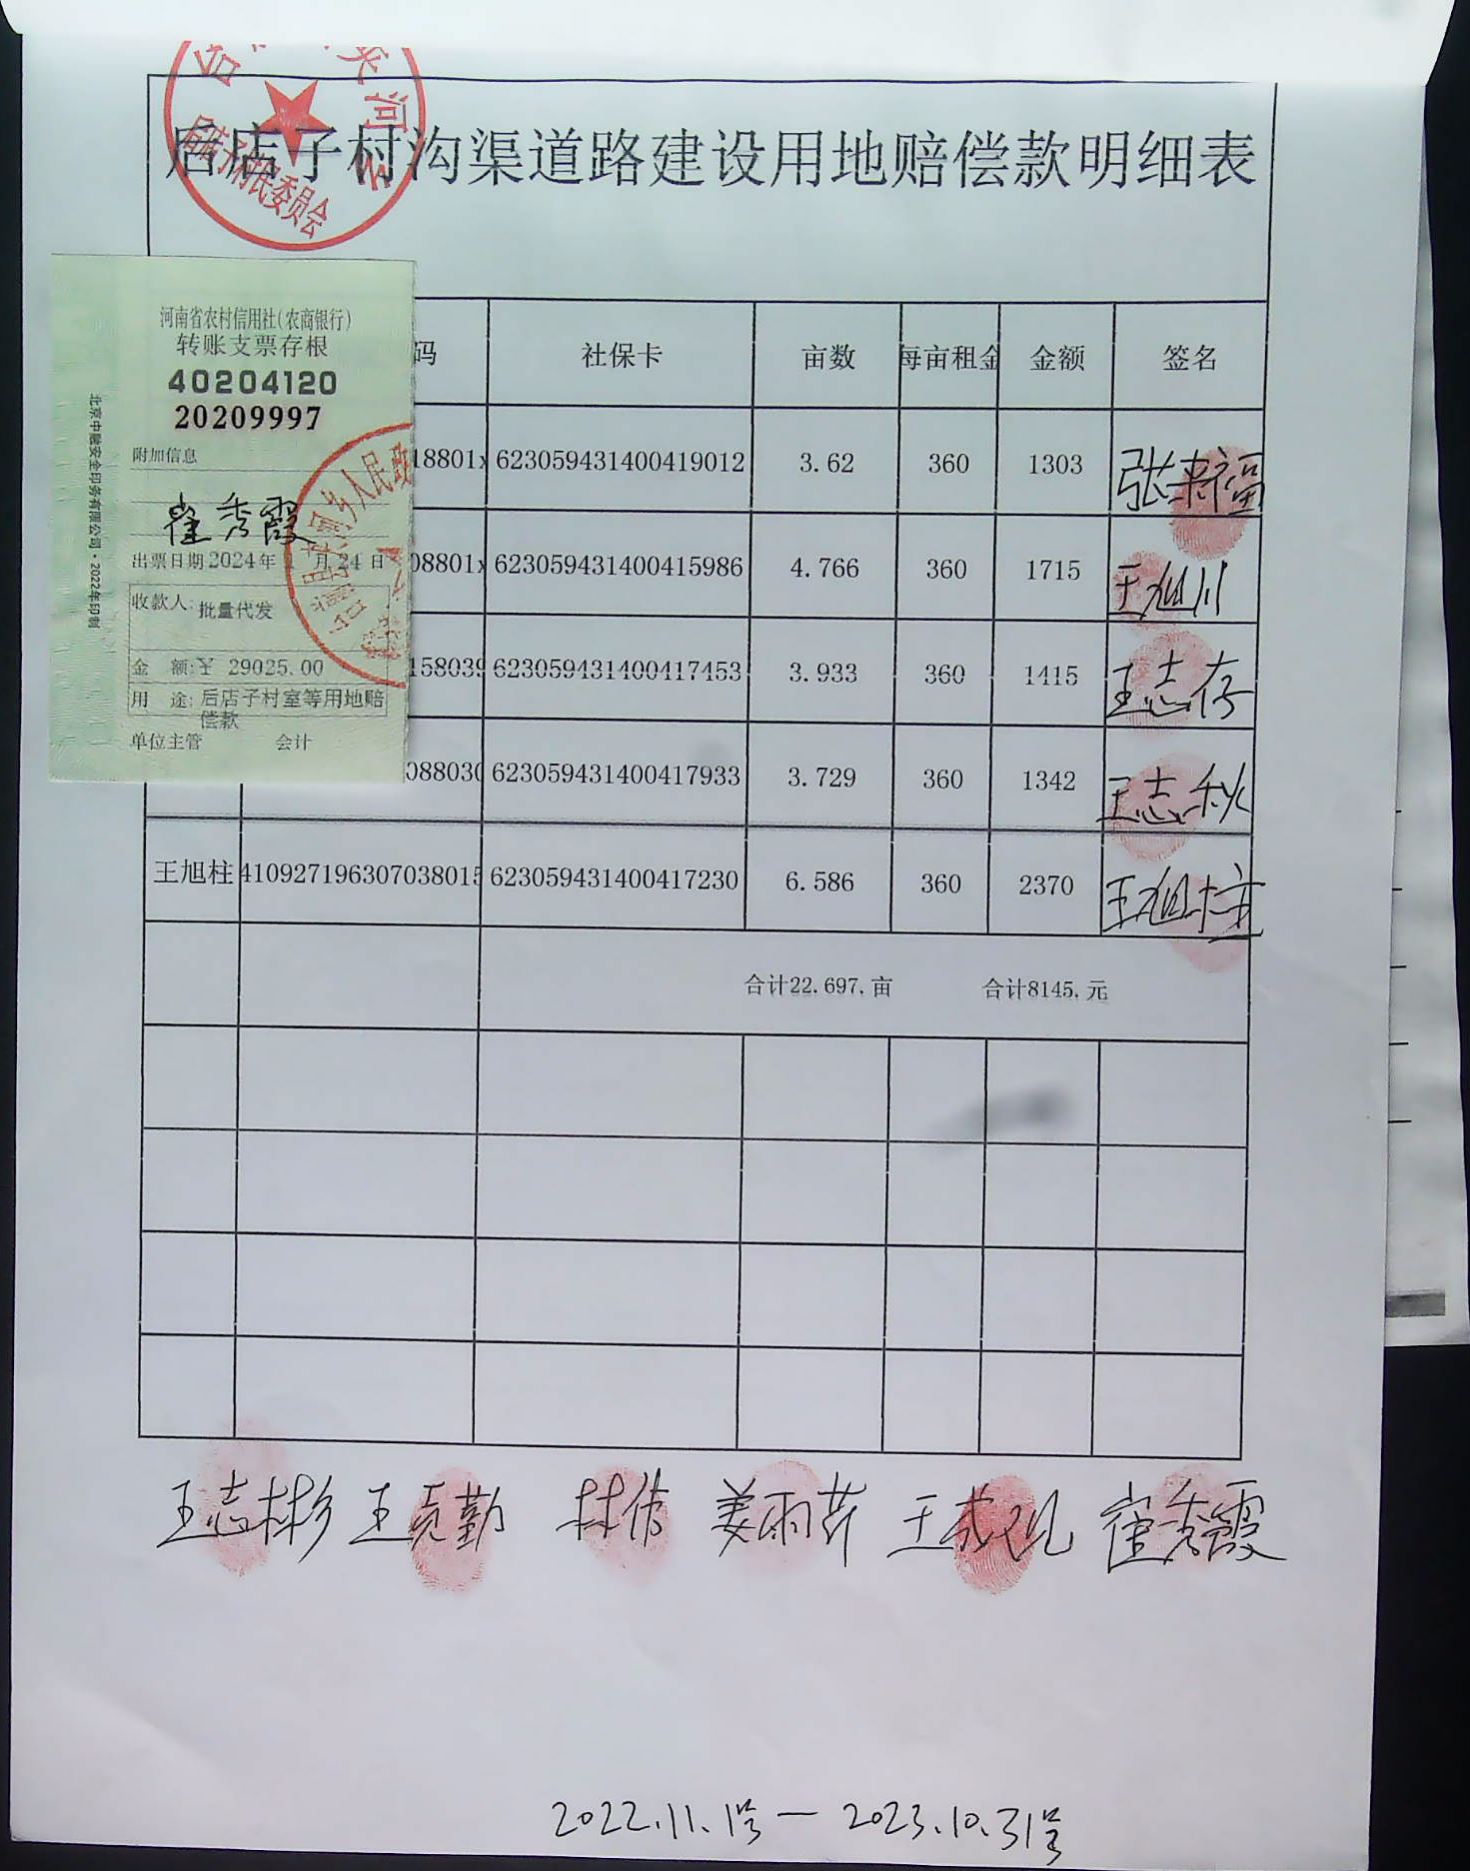 后店子村沟渠道路建设用地赔偿款明细表
后店子村民委员会
河南省农村信用社(农商银行)
转账支票存根
40204120
20209997
附加信息
崔秀霞
出票日期 2024年 月24日
收款人: 批量代发
金 额:¥ 29025.00
用 途: 后店子村室等用地赔
偿款
单位主管 会计
北京中融安全印务有限公司·2022年印制
乡人民政
码 社保卡 亩数 每亩租金 金额 签名
18801x 623059431400419012 3.62 360 1303 张来福
08801x 623059431400415986 4.766 360 1715 王旭川
158039 623059431400417453 3.933 360 1415 王志存
088030 623059431400417933 3.729 360 1342 王志秋
王旭柱 410927196307038015 623059431400417230 6.586 360 2370 王旭柱
合计22.697.亩 合计8145.元
王志彬 王克勤 林伟 姜雨芹 崔秀霞
2022.11.1号一2023.10.31号